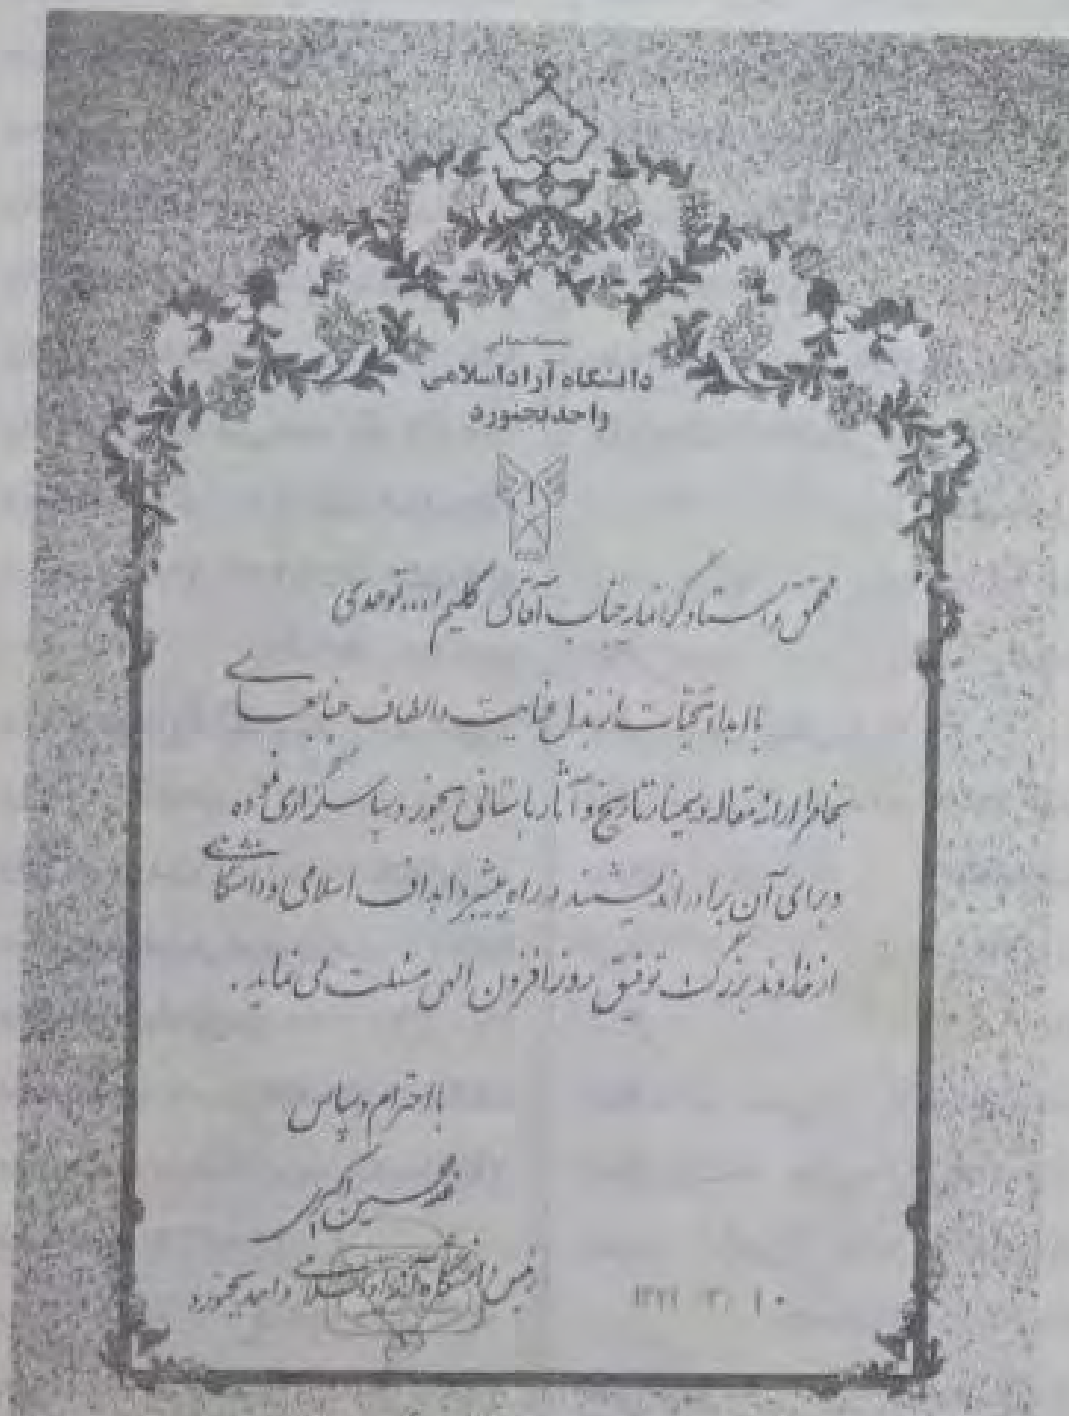 بسمه تعالی
دانشگاه آزاد اسلامی
واحد بجنورد
محقق و استاد گرانمایه جناب آقای کلیم ا... توحدی
با اهداء تحیات از بذل عنایت و الطاف جنابعالی
بخاطر ارائه مقاله در سمینار تاریخ و آثار باستانی بجنورد سپاسگزاری نموده
و برای آن برادر اندیشمند در راه پیشبرد اهداف اسلامی و دانشگاهی
از خداوند بزرگ توفیق روزافزون الهی مسئلت می نماید.
با احترام و سپاس
حسین اکبری
رئیس دانشگاه آزاد اسلامی واحد بجنورد